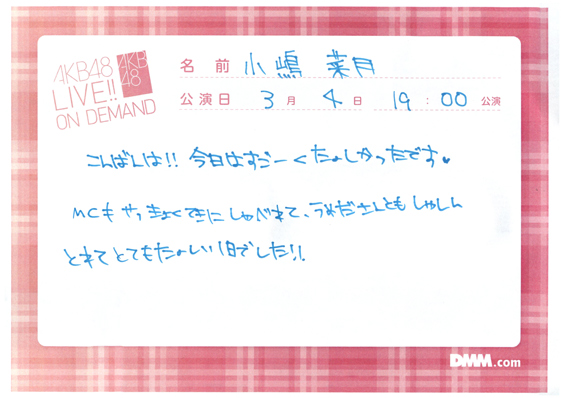 AKB48
LIVE!!
ON DEMAND
AKB
48
名前 小嶋 菜月
公演日 3月 4日 19:00 公演
こんばんは!! 今日はすごーくたのしかったです♥
MCもせっきょくてきにしゃべれて、うえださんともしゃしん
とれてとてもたのしい1日でした!!
DMM.com